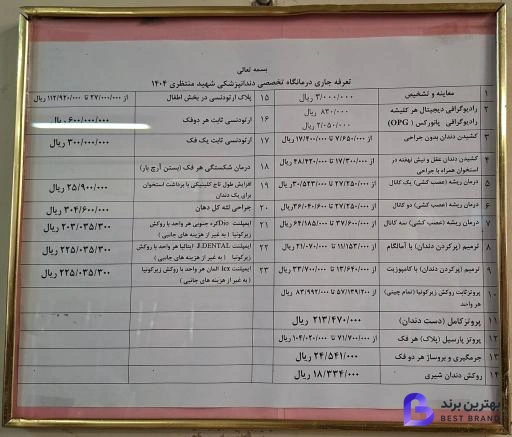 بسمه تعالی
تعرفه جاری درمانگاه تخصصی دندانپزشکی شهید منتظری ۱۴۰۴
۱ معاینه و تشخیص ۳/۰۰۰/۰۰۰ ریال
۲ رادیوگرافی دیجیتال هر کلیشه ۸۳۰/۰۰۰ ریال
رادیوگرافی پانورکس ( OPG ) ۲/۰۵۰/۰۰۰ ریال
۳ کشیدن دندان بدون جراحی از ۷/۶۵۰/۰۰۰ تا ۱۷/۴۰۰/۰۰۰ ریال
۴ کشیدن دندان عقل و نیش نهفته در استخوان همراه با جراحی از ۱۷/۳۰۰/۰۰۰ تا ۴۸/۴۲۰/۰۰۰ ریال
۵ درمان ریشه (عصب کشی) یک کانال از ۲۷/۲۵۰/۰۰۰ تا ۳۰/۵۴۳/۰۰۰ ریال
۶ درمان ریشه (عصب کشی) دو کانال از ۲۷/۲۵۰/۰۰۰ تا ۳۶/۰۴۰/۶۰۰ ریال
۷ درمان ریشه (عصب کشی) سه کانال از ۳۷/۶۰۰/۰۰۰ تا ۶۴/۱۸۵/۰۰۰ ریال
۸ ترمیم (پرکردن) دندان با آمالگام از ۱۱/۱۵۳/۰۰۰ تا ۲۱/۰۷۰/۰۰۰ ریال
۹ ترمیم (پرکردن) دندان با کامپوزیت از ۱۳/۶۴۰/۰۰۰ تا ۳۳/۷۰۰/۰۰۰ ریال
۱۰ پروتز ثابت روکش زیرکونیا (تمام چینی) هر واحد از ۵۷/۱۳۹/۲۰۰ تا ۸۳/۹۹۲/۰۰۰ ریال
۱۱ پروتز کامل (دست دندان) ۲۱۳/۴۷۰/۰۰۰ ریال
۱۲ پروتز پارسیل (پلاک) هر فک از ۷۱/۷۰۰/۰۰۰ تا ۱۰۴/۰۲۰/۰۰۰ ریال
۱۳ جرمگیری و بروساژ هر دو فک ۲۴/۵۴۱/۰۰۰ ریال
۱۴ روکش دندان شیری ۱۸/۳۳۴/۰۰۰ ریال
۱۵ پلاک ارتودنسی در بخش اطفال از ۲۷/۰۰۰/۰۰۰ تا ۱۱۲/۹۲۰/۰۰۰ ریال
۱۶ ارتودنسی ثابت هر دوفک ۶۰۰/۰۰۰/۰۰۰ ریال
۱۷ ارتودنسی ثابت یک فک ۳۰۰/۰۰۰/۰۰۰ ریال
۱۸ درمان شکستگی هر فک (بستن آرچ بار)
۱۹ افزایش طول تاج کلینیکی با برداشت استخوان برای یک دندان ۲۵/۹۰۰/۰۰۰ ریال
۲۰ جراحی لثه کل دهان ۳۰۴/۶۰۰/۰۰۰ ریال
۲۱ ایمپلنت Dio کره جنوبی هر واحد با روکش زیرکونیا ( به غیر از هزینه های جانبی ) ۲۰۳/۰۳۵/۳۰۰ ریال
۲۲ ایمپلنت J.DENTAL ایتالیا هر واحد با روکش زیرکونیا ( به غیر از هزینه های جانبی) ۲۲۵/۰۳۵/۳۰۰ ریال
۲۳ ایمپلنت icx آلمان هر واحد با روکش زیرکونیا ( به غیر از هزینه های جانبی) ۲۲۵/۰۳۵/۳۰۰ ریال
بهترین برند
BEST BRAND